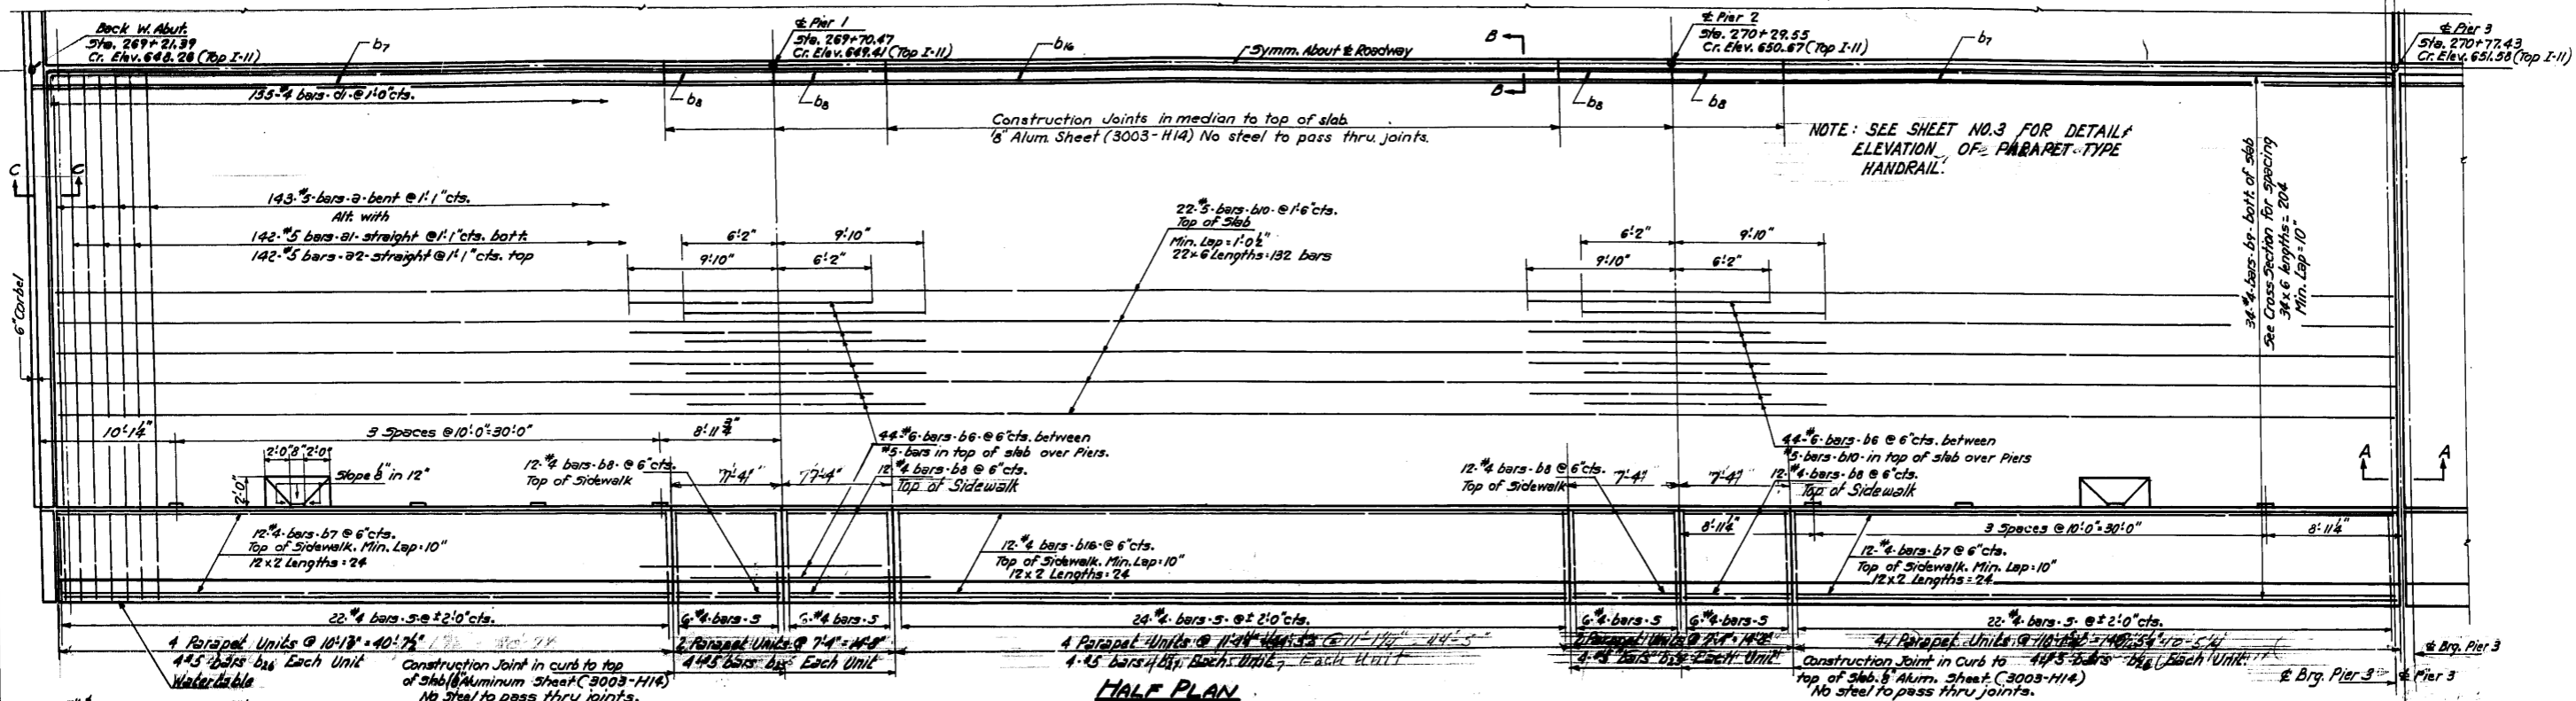 Back W. Abut.
Sta. 269+21.39
Cr. Elev. 648.28 (Top I-11)
b7
℄ Pier 1
Sta. 269+70.47
Cr. Elev. 649.41 (Top I-11)
b16
Symm. About ℄ Roadway
B
B
℄ Pier 2
Sta. 270+29.55
Cr. Elev. 650.67 (Top I-11)
b7
℄ Pier 3
Sta. 270+77.43
Cr. Elev. 651.58 (Top I-11)
155-#4 bars-d1-@1'-0"cts.
b8
b8
b8
b8
Construction Joints in median to top of slab.
1/8" Alum. Sheet (3003-H14) No steel to pass thru. joints.
NOTE: SEE SHEET NO.3 FOR DETAILS
ELEVATION OF PARAPET-TYPE
HANDRAIL.
C
C
143-#5-bars-a-bent @1'-1"cts.
Alt. with
142-#5 bars-a1-straight @1'-1"cts. bott.
142-#5 bars-a2-straight @1'-1"cts. top
22-#5-bars-b10-@1'-6"cts.
Top of Slab
Min. Lap=1'-0½"
22x6 Lengths=132 bars
6'-2"
9'-10"
9'-10"
6'-2"
6'-2"
9'-10"
9'-10"
6'-2"
34-#4-bars-b9-bott. of slab
See Cross Section for spacing
34x6 lengths=204
Min. Lap=10"
6" Corbel
10'-1¼"
3 Spaces @10'-0"=30'-0"
8'-11¾"
2'-0" 8" 2'-0"
2'-0"
Slope 6" in 12"
12-#4 bars-b8-@6"cts.
Top of Sidewalk
44-#6-bars-b6-@6"cts. between
#5-bars in top of slab over Piers.
12-#4 bars-b8 @6"cts.
Top of Sidewalk
7'-4"
7'-4"
12-#4 bars-b8 @6"cts.
Top of Sidewalk
7'-4"
7'-4"
44-#6-bars-b6 @6"cts. between
#5-bars-b10-in top of slab over Piers
12-#4-bars-b8 @6"cts.
Top of Sidewalk
A
A
8'-11¼"
3 Spaces @10'-0"=30'-0"
8'-11¼"
12-#4-bars-b7 @6"cts.
Top of Sidewalk. Min. Lap=10"
12x2 Lengths=24
12-#4 bars-b16-@6"cts.
Top of Sidewalk. Min. Lap=10"
12x2 Lengths=24
12-#4-bars-b7 @6"cts.
Top of Sidewalk. Min. Lap=10"
12x2 Lengths=24
22-#4 bars-s-@±2'-0"cts.
6-#4-bars-s
6-#4 bars-s
24-#4-bars-s-@±2'-0"cts.
6-#4-bars-s
6-#4-bars-s
22-#4-bars-s-@±2'-0"cts.
4 Parapet Units @ 10'-1⅞"=40'-7½"
2 Parapet Units @ 7'-4"=14'-8"
4 Parapet Units @ 11'-1¼" 44'-5"
Parapet Units @ 7'-4"=14'-8"
4 Parapet Units @
4-#5 bars Each Unit
4-#5 bars Each Unit
4-#5 bars Each Unit
4-#5 bars Each Unit
4-#5 bars Each Unit
Watertable
Construction Joint in curb to top
of Slab ⅛"Aluminum Sheet (3003-H14)
No Steel to pass thru joints.
HALF PLAN
Construction Joint in Curb to
top of Slab. ⅛" Alum. Sheet (3003-H14)
No steel to pass thru joints.
℄ Brg. Pier 3
℄ Brg. Pier 3
℄ Pier 3